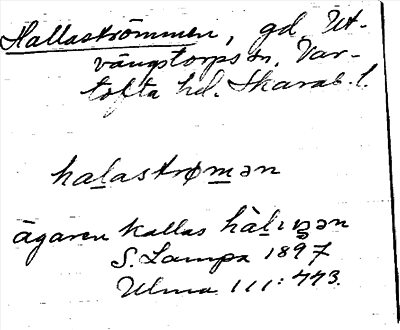 Hallaströmmen, gd, Ut-
vängstorps sn, Var-
tofta hd. Skarab. l.
halastrømən
ägaren kallas hàlıŋən
S. Lampa 1897
Ulma 111:443.